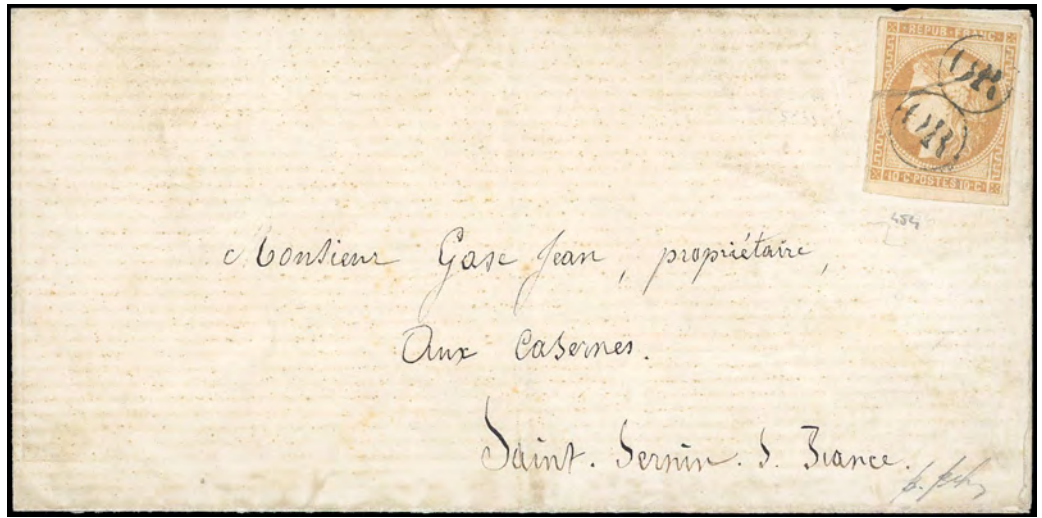 REPUB · FRANC
OR
OR
10 · C · POSTES 10 · C
Monsieur Gase Jean, propriétaire,
Aux Casernes.
Saint. Sernin. S. Rance.